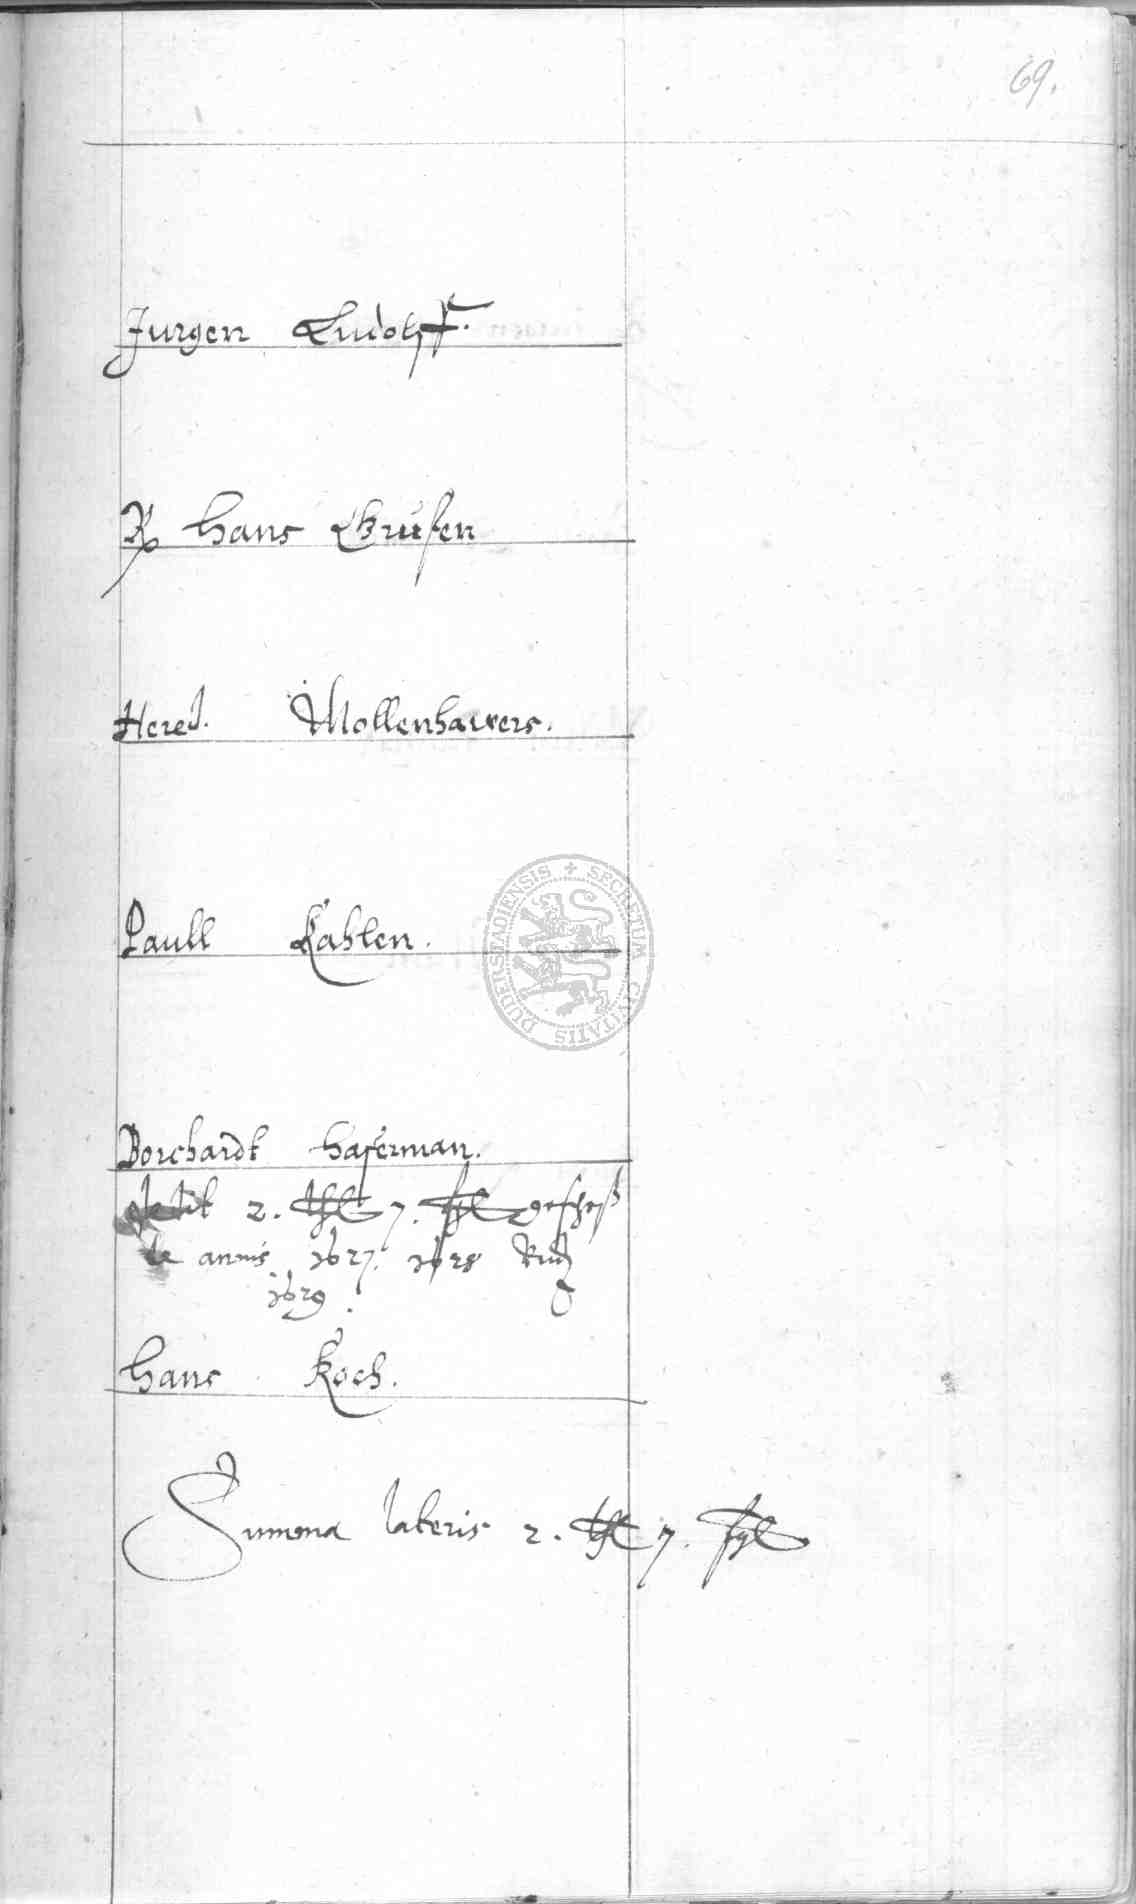 69.
Jurgen Ludolff.
Hans Krusen
Hered. Mollenhawers.
Paull Kahlen.
Borchardt Haferman.
dedit 2. thl 7. ßgl geschoß
de annis 1627. 1628 Und
1629.
Hans Koch.
Summa lateris 2. thl 7. ßgl
SECRETUM CIVITATIS DUDERSTADIENSIS